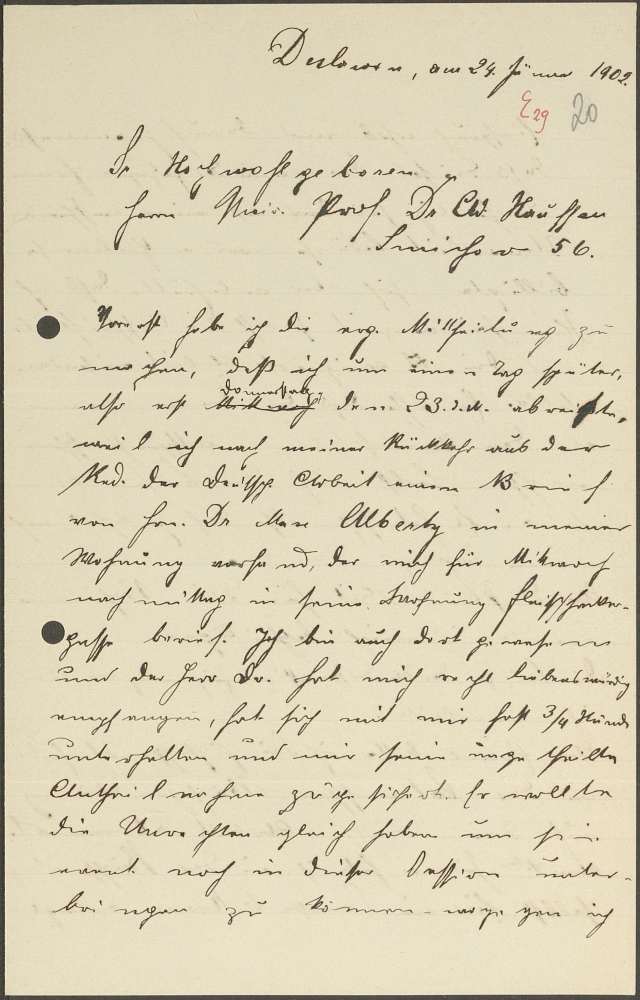 Deslawen, am 24. Jänner 1902.
E 29 20
Sr Hochwohlgeboren
Herrn Univ. Prof. Dr Ad. Hauffen
Smichow 56.
Vorerst habe ich die erg. Mittheilung zu
machen, daß ich um einen Tag später,
also erst Mittwoch Donnerstag den 23. d. M. abreiste,
weil ich nach meiner Rückkehr aus der
Red. der Deutsch. Arbeit einen Brief
von Hrn. Dr Max Alberty in meiner
Wohnung vorfand, der mich für Mittwoch
nachmittag in seine Wohnung Fleischhacker-
gasse berief. Ich bin auch dort gewesen
und der Herr Dr. hat mich recht liebenswürdig
empfangen, hat sich mit mir fast 3/4 Stunde
unterhalten und mir seine ungetheilte
Antheilnahme zugesichert. Er wollte
die gleich haben um sie
event. noch in dieser Session unter-
bringen zu können, wogegen ich